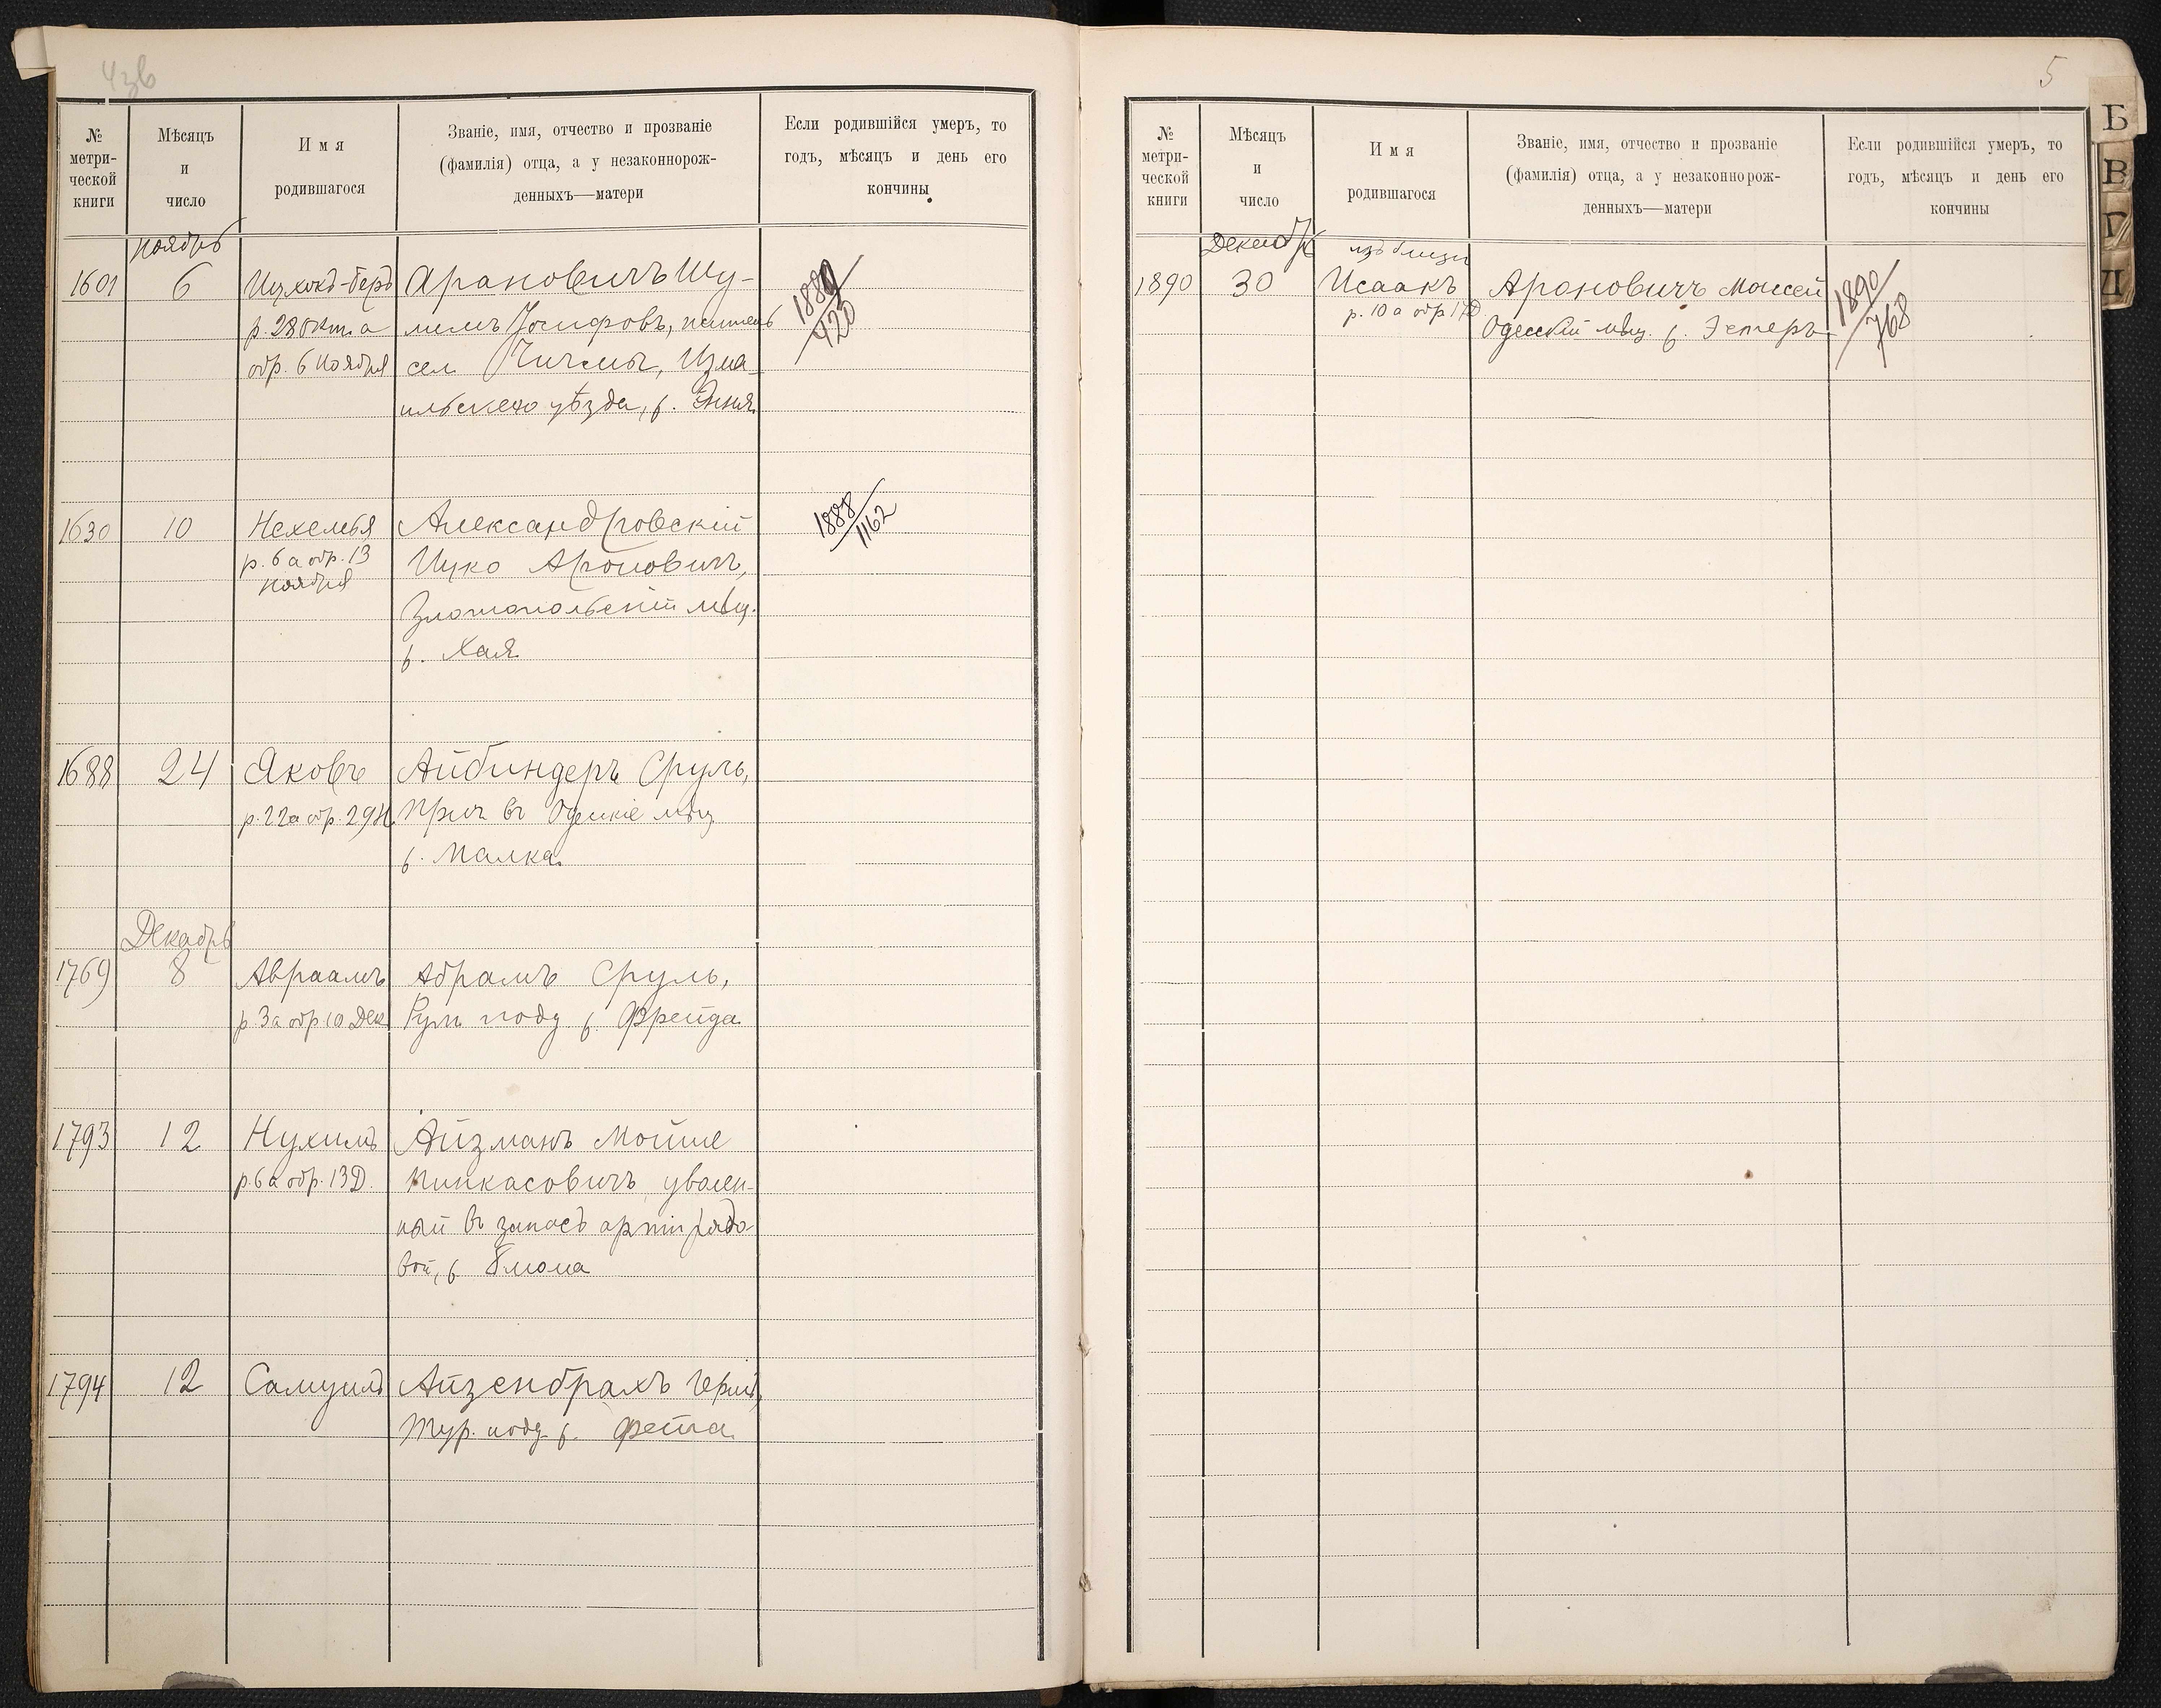 4зв
№ метрической книги
Мѣсяцъ и число
Имя родившагося
Званіе, имя, отчество и прозваніе
(фамилія) отца, а у незаконнорож-
денныхъ—матери
Если родившійся умеръ, то
годъ, мѣсяцъ и день его
кончины
Ноябрь
1601 6 Ицхокъ-Беръ Ароновичъ Шу-
р. 28 Окт. а лимъ Іосифовъ,
обр. 6 Ноября сел. Чичмы, Изма-
ильскаго уѣзда, ж.
1889/420
1630 10 Нехемья Александровскій
р. 6 а обр. 13 Ицко Ароновичъ,
Ноября Златопольскій мѣщ.
ж. Хая
1888/1162
1688 24 Яковъ Айбиндеръ Сруль,
р. 22 а обр. 29 Н. Прич. въ Одесскіе мѣщ
ж. Малка
Декабрь
1769 8 Авраамъ Абрамъ Сруль,
р. 3 а обр 10 Дек. Рум. подд. ж. Фрейда
1793 12 Нухимъ Айзманъ Мойше
р. 6 а обр. 13 Д. Пинкасовичъ, уволен-
ный въ запасъ арміи рядо-
вой, ж. Блюма
1794 12 Самуилъ Айзенбрахъ
Тур. подд. ж. Фейга
5
№ метрической книги
Мѣсяцъ и число
Имя родившагося
Званіе, имя, отчество и прозваніе
(фамилія) отца, а у незаконнорож-
денныхъ—матери
Если родившійся умеръ, то
годъ, мѣсяцъ и день его
кончины
Декабрь изъ близн
1890 30 Исаакъ Ароновичъ Моисей
р. 10 а обр 17 Д. Одесскій мѣщ. ж. Эстеръ
1890/768
Б
В
Г
Д